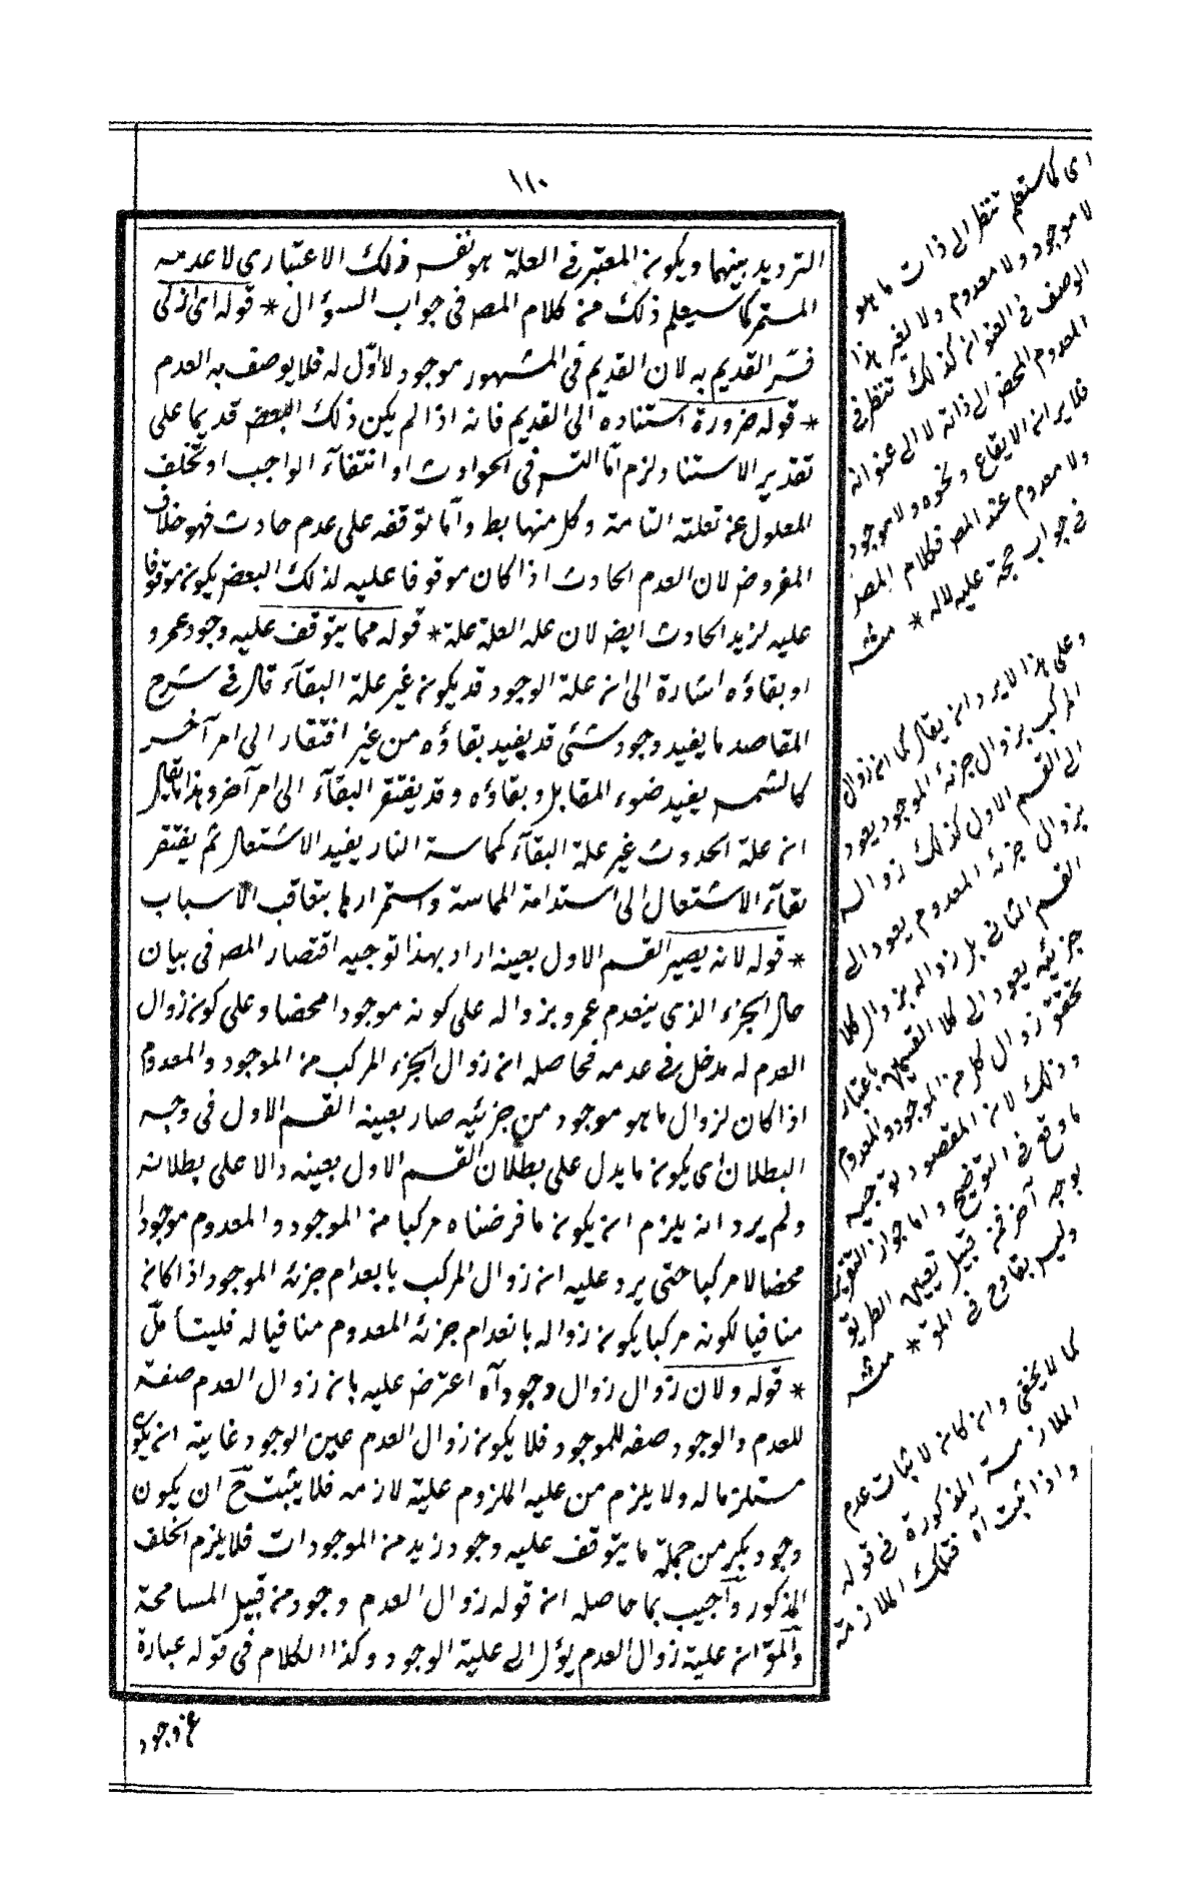 ١١٠
الترديد بينهما ويكون المعتبر في العلة هو نفس ذلك الاعتباري لا عدمه
المستمر كما سيعلم ذلك من كلام المص في جواب السؤال * قوله اى ازلى
فسّر القديم به لان القديم في المشهور موجود لا اوّل له فلا يوصف به العدم
* قوله ضرورة استناده الى القديم فانه اذا لم يكن ذلك البعض قديما على
تقدير الاستناد لزم امّا التس في الحوادث او انتفاء الواجب او تخلف
المعلول عن علته التامة وكل منها بط وأما توقفه على عدم حادث فهو خلاف
المفروض لان العدم الحادث اذا كان موقوفا عليه لذلك البعض يكون موقوفا
عليه لزيد الحادث ايض لان علة العلة علة * قوله مما يتوقف عليه وجود عمرو
او بقاؤه اشارة الى ان علة الوجود قد يكون غير علة البقاء قال في شرح
المقاصد ما يفيد وجود شئ قد يفيد بقاؤه من غير افتقار الى امر آخر
كالشمس يفيد ضوء المقابل وبقاؤه وقد يفتقر البقاء الى امر آخر وهذا ما يقال
ان علة الحدوث غير علة البقاء كمماسة النار يفيد الاشتعال ثم يفتقر
بقاء الاشتعال الى استدامة المماسة واستمرارها بتعاقب الاسباب
* قوله لانه يصير القسم الاول بعينه اراد بهذا توجيه اقتصار المص في بيان
حال الجزء الذى ينعدم عمرو بزواله على كونه موجودا محضا وعلى كون زوال
العدم له مدخل في عدمه فحاصله ان زوال الجزء المركب من الموجود والمعدوم
اذا كان لزوال ما هو موجود من جزئيه صار بعينه القسم الاول في وجه
البطلان اى يكون ما يدل على بطلان القسم الاول بعينه دالا على بطلانه
ولم يرد انه يلزم ان يكون ما فرضناه مركبا من الموجود والمعدوم موجودا
محضا لا مركبا حتى يرد عليه ان زوال المركب بانعدام جزئه الموجود اذا كان
منافيا لكونه مركبا يكون زواله بانعدام جزئه المعدوم منافيا له فليتأمل
* قوله ولان زوال زوال وجود آه اعترض عليه بان زوال العدم صفة
للعدم والوجود صفة للموجود فلا يكون زوال العدم عين الوجود غايته ان يكون
مستلزما له ولا يلزم من علية الملزوم علية لازمه فلا يثبت ح ان يكون
وجود بكر من جملة ما يتوقف عليه وجود زيد من الموجودات فلا يلزم الخلف
المذكور وأجيب بما حاصله ان قوله زوال العدم وجود من قبيل المسامحة
والمق ان علية زوال العدم يؤل الى علية الوجود وكذا الكلام في قوله عبارة
عن وجود
اى كما ستعلم تنظر الى ذات ما هو
لا موجود ولا معدوم ولا لغير هذا
الوصف في العنوان كذلك تنظر في
المعدوم المحض الى ذاته لا الى عنوانه
فلا يرد ان الايقاع ونحوه ولا موجود
ولا معدوم عند المص فكلام المص
في جواب حجة عليه لا له * منه
وعلى هذا لا يرد ان يقال كما ان زوال
المركب بزوال جزئه الموجود يعود
الى القسم الاول كذلك زواله
بزوال جزئه المعدوم يعود الى
القسم الثاني بل زواله بزوال كلا
جزئيه يعود الى كلا القسمين باعتبار
تحقق زوال كل من الموجود والمعدوم
وذلك لان المقصود توجيه
ما وقع في التوضيح واما جواز التقرير
بوجه آخر فمن قبيل تعيين الطريق
وليس بقادح في المق * منه
كما لا يخفى وان كان لاثبات عدم
الملازمة المذكورة في قوله
واذا ثبت آه فتلك الملازمة